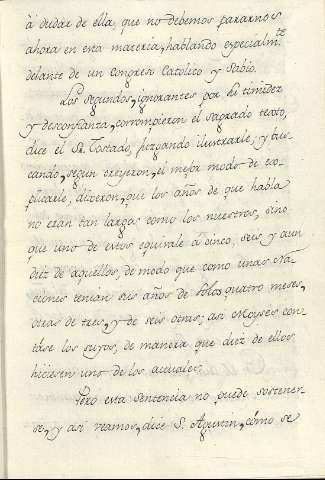 à dudar de ella, que no debemos pararnos
ahora en esta materia, hablando especialm.te
delante de un Congreso Catolico y Sabio.
Los segundos, ignorantes por su timidez
y desconfianza, corrompieron el sagrado texto,
dice el Sr. Tostado, juzgando ilustrarle, y bus-
cando, segun creyeron, el mejor modo de ex-
plicarle, dixeron, que los años de que habla
no eran tan largos como los nuestros, sino
que uno de estos equivale à cinco, seis y aun
diez de aquellos, de modo que como unas Na-
ciones tenian sus años de solos quatro meses,
otras de tres, y de seis otras; asi Moyses con-
tase los suyos, de manera que diez de ellos
hiciesen uno de los actuales.
Pero esta sentencia no puede sostener-
se, y asi veamos, dice S. Agustin, cómo se